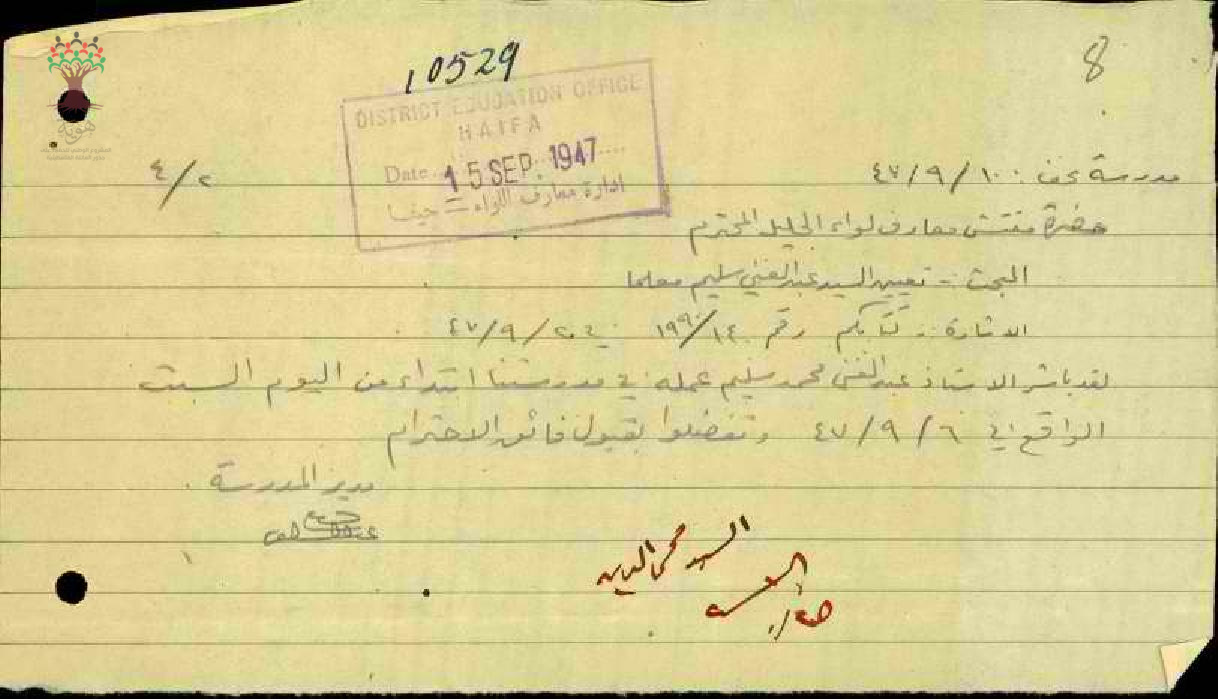 10529
8
DISTRICT EDUCATION OFFICE
HAIFA
Date 15 SEP. 1947
ادارة معارف اللواء = حيفا
هوية
٤/٢
مدرسة سحف: ١٠/٩/٤٧
حضرة مفتش معارف لواء الجليل المحترم
المبحث :- تعيين السيد عبد الغني سليم معلما
الاشارة :- كتابكم رقم ١٩٩/١٤ في ٢٠/٩/٤٧
لقد باشر الاستاذ عبد الغني محمد سليم عمله في مدرستنا ابتداء من اليوم السبت
الواقع في ٦/٩/٤٧ وتفضلوا بقبول فائق الاحترام
مدير المدرسة
السيد محي الدين